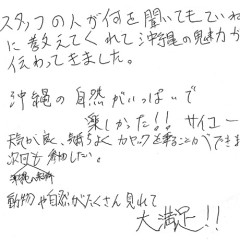 スタッフの人が何を聞いてもていね
に教えてくれて沖縄の魅力が
伝わってきました。
沖縄の自然がいっぱいで
楽しかった!! サイコー
天気が良く、気持ちよくカヤックを乗ることができま
次回も参加したい。
動物や自然がたくさん見れて
大満足!!